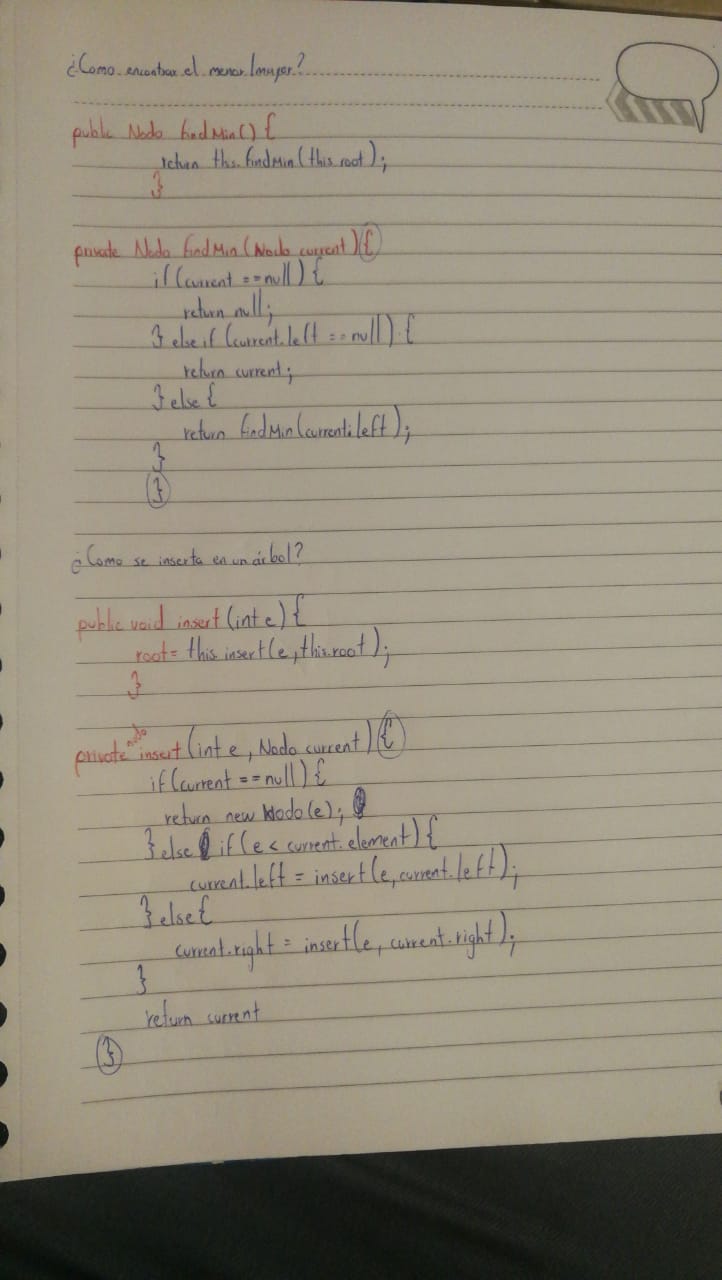 ¿Como encontrar el menor/mayor?
public Nodo findMin() {
return this.findMin(this.root);
}
private Nodo findMin(Nodo current){
if(current == null) {
return null;
} else if (current.left == null) {
return current;
} else {
return findMin(current.left);
}
}
¿Como se inserta en un árbol?
public void insert(int e) {
root= this.insert(e, this.root);
}
private nodo insert(int e, Nodo current) {
if(current == null) {
return new Nodo(e);
} else if(e < current.element) {
current.left = insert(e, current.left);
} else {
current.right = insert(e, current.right);
}
return current
}